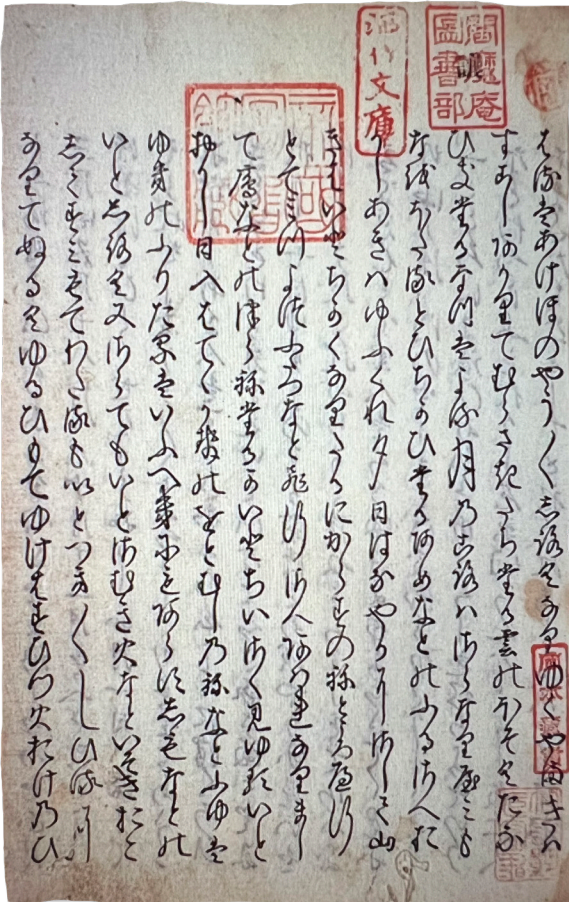 はるはあけほのやう〱しろくなりゆくやまきは
すこしあかりてむらさきたちたる雲のほそくたな
ひきたるなつはよる月のころはさらなりやみも
なをほたるとひちかひたるあめなとのふるさへお
かしあきはゆふくれ夕日はなやかにさして山
きはいとちかくなりたるにからすのねところへ行
とてみつよつふたつなと飛行さへあはれなりまし
て雁なとのつらねたるかいとちいさく見ゆるいと
おかし日入はてゝかせのをとむしのねなとふゆは
ゆきのふりたるはいふへきにもあらすしもなとの
いとしろく又さらてもいとさむき火なといそきおこ
しすみもてわたるもいとつき〱しひるに
なりてぬるくゆるひもてゆけはすひつ火おけのひ
閻魔庵
啚書部
酒竹文庫